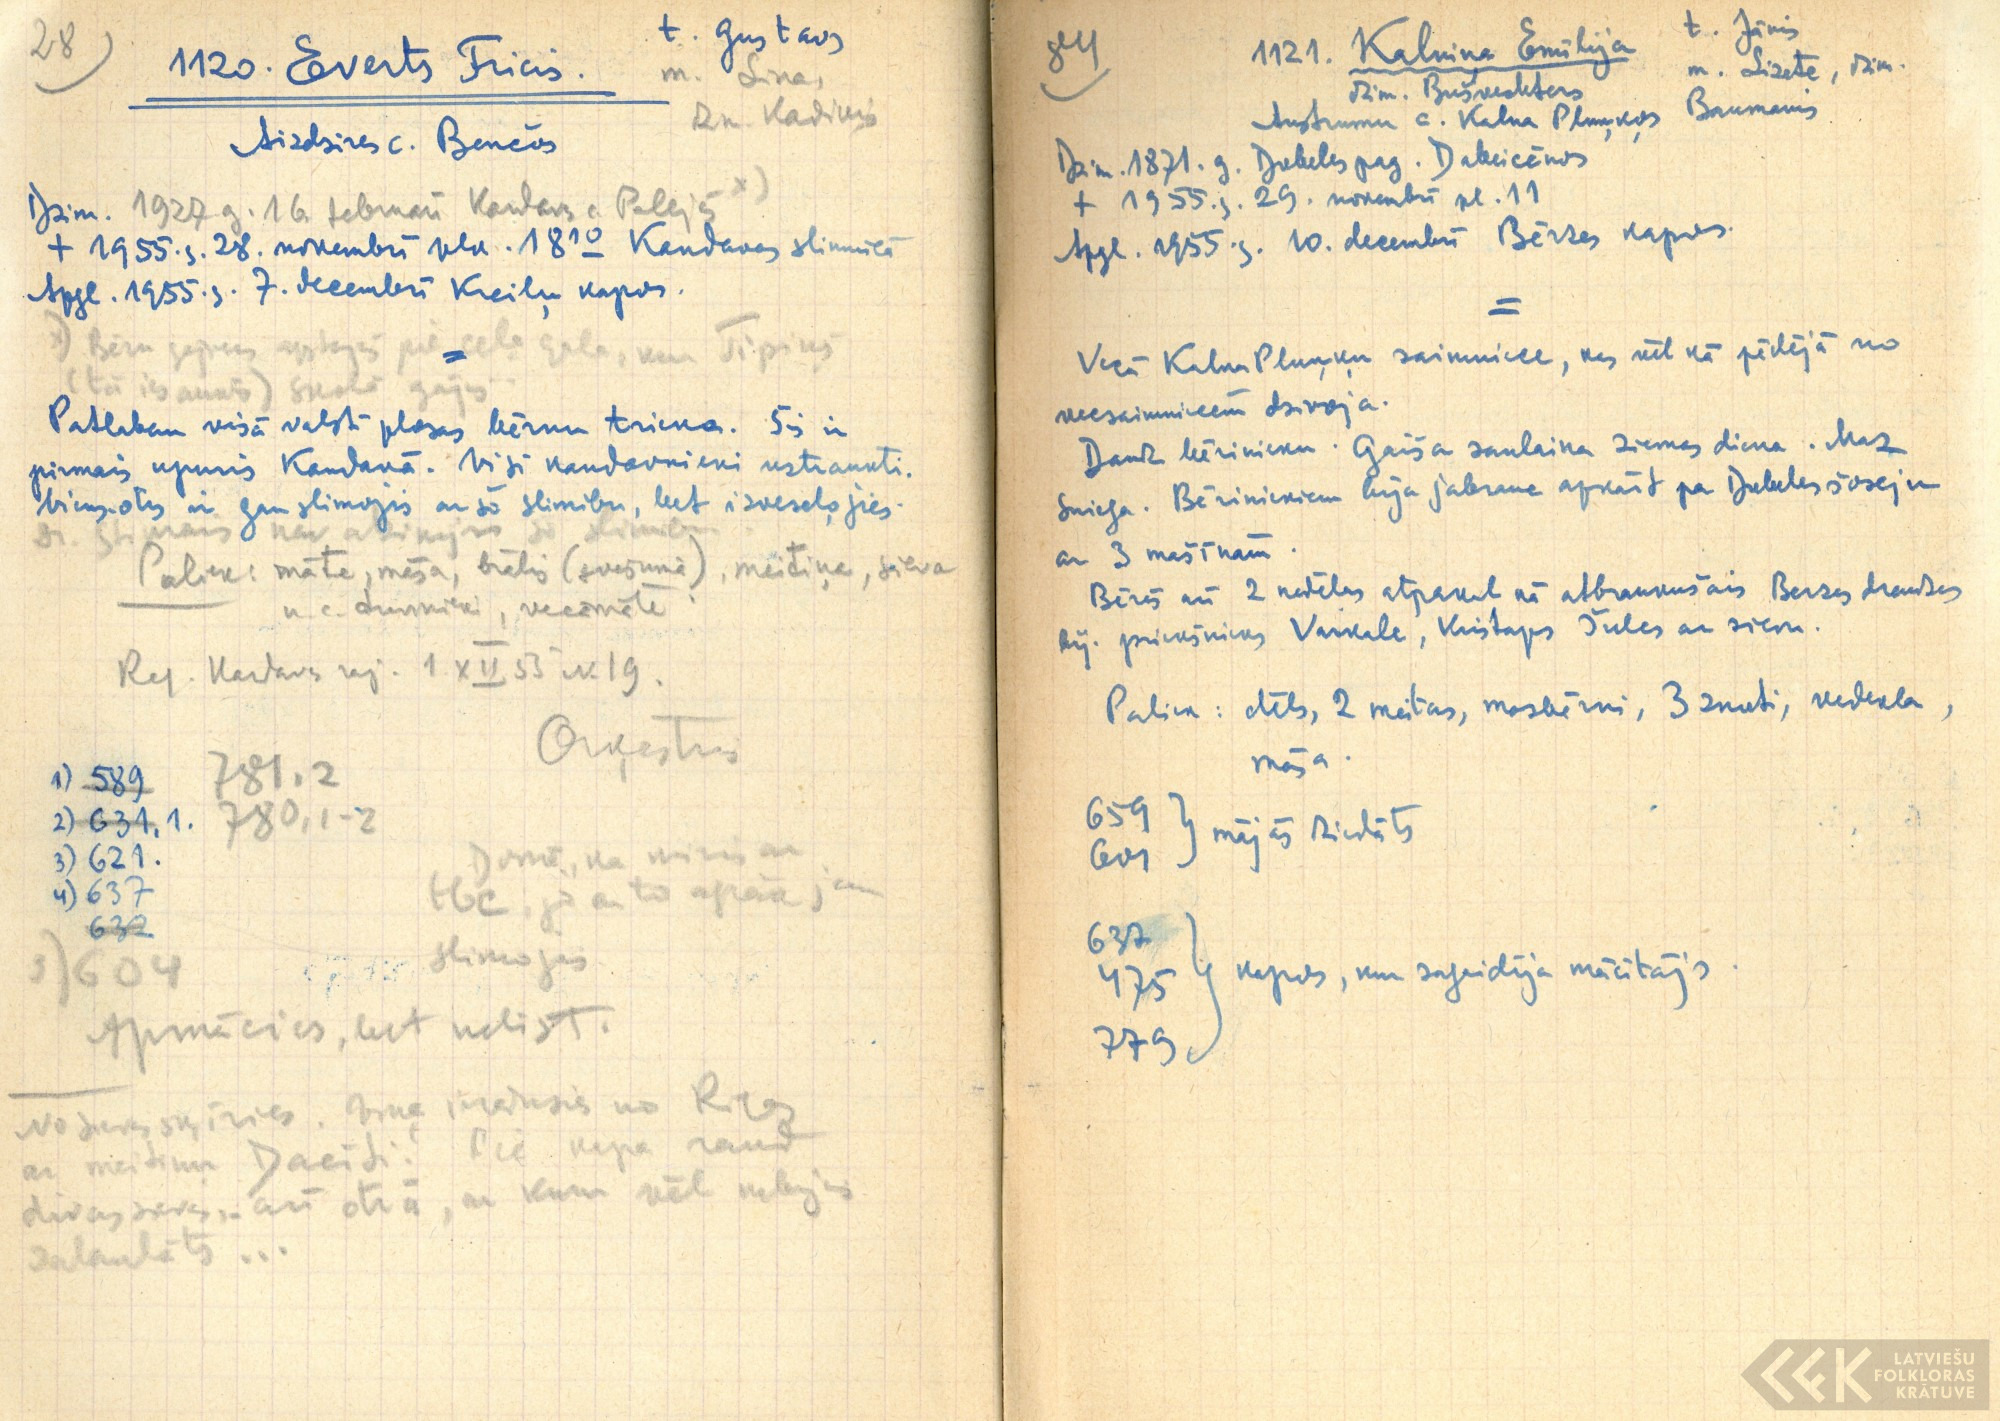 28)
1120. Everts Fricis.
t. Gustavs
m. Lina,
dz. Kadiķis
Aizdzires c. Benčos
Dzim. 1927 g. 16. februārī Kandavas c. Palejās x)
+ 1955.g. 28. novembrī plk. 18 10 Kandavas slimnīcā
Apgl. 1955.g. 7. decembrī Kreiļu kapos.
=
x) Bērnu
skolā gājis
Patlaban visā valstī plosas bērnu trieka. Šis ir
pirmais upuris Kandavā. Visi kandavnieki uztraukti.
Viens otrs ir gan slimojis ar šo slimību, bet izveseļojies.
Paliek: māte, māsa, brālis (svešumā), meitiņa, sieva
u.c. draudziņi, vecāmāte.
Reģ. Kandavas raj. 1 XII 55 № 19.
Orķestris
1) 589 781.2
2) 631,1. 780,1-2
3) 621.
4) 637
632
5) 604
Domā, ka miris ar
tbc, jo ar to agrāk jau
slimojis
Apmācies, bet nelīst.
No sievas šķīries. Viņa izradusies no Rīgas
ar meitiņu Dacīti. Pie kapa raud
divas sievas, arī otrā, ar kuru vēl nebijis
salaulāts ...
84)
1121. Kalniņa Emīlija
t. Jānis
m. Lizete, dzim.
Baumanis
dzim. Bušvekters
Austrumu c. Kalna Pluņķos
Dzim. 1871. g. Dobeles pag. Dakcicēnos
+ 1955.g. 29. novembrī pl. 11
Apgl. 1955.g. 10. decembrī Bērzes kapos.
=
Vecā Kalna Pluņķu saimniece, kas vēl kā pēdējā no
vecsaimniecēm dzīvoja.
Daudz bērinieku. Gaiša saulaina ziemas diena. Maz
sniega. Bēriniekiem bija jābrauc apkārt pa Dobeles šoseju
ar 3 mašīnām.
Bērēs arī 2 nedēļas atpakaļ kā atbraukušais Bērzes draudzes
bij. priekšnieks Vārkale, Kristaps Šulcs ar sievu.
Paliek: dēls, 2 meitas, mazbērni, 3 znoti, vedekla,
māsa.
659
601
} mājās dziedāts
637
475
779
} kapos, kur sagaidīja mācītājs.
LATVIEŠU
FOLKLORAS
KRĀTUVE